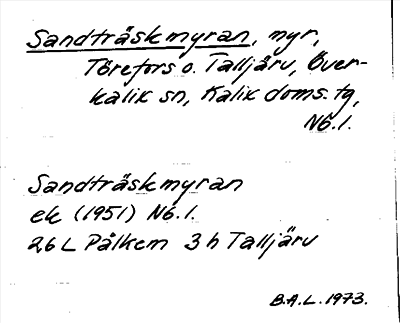 Sandträskmyran, myr,
Törefors o. Talljärv, Över-
kalix sn, Kalix doms. tg,
Nb. l.
Sandträskmyran
ek (1951) Nb. l.
26 L Pålkem 3 h Talljärv
B.A.L. 1973.